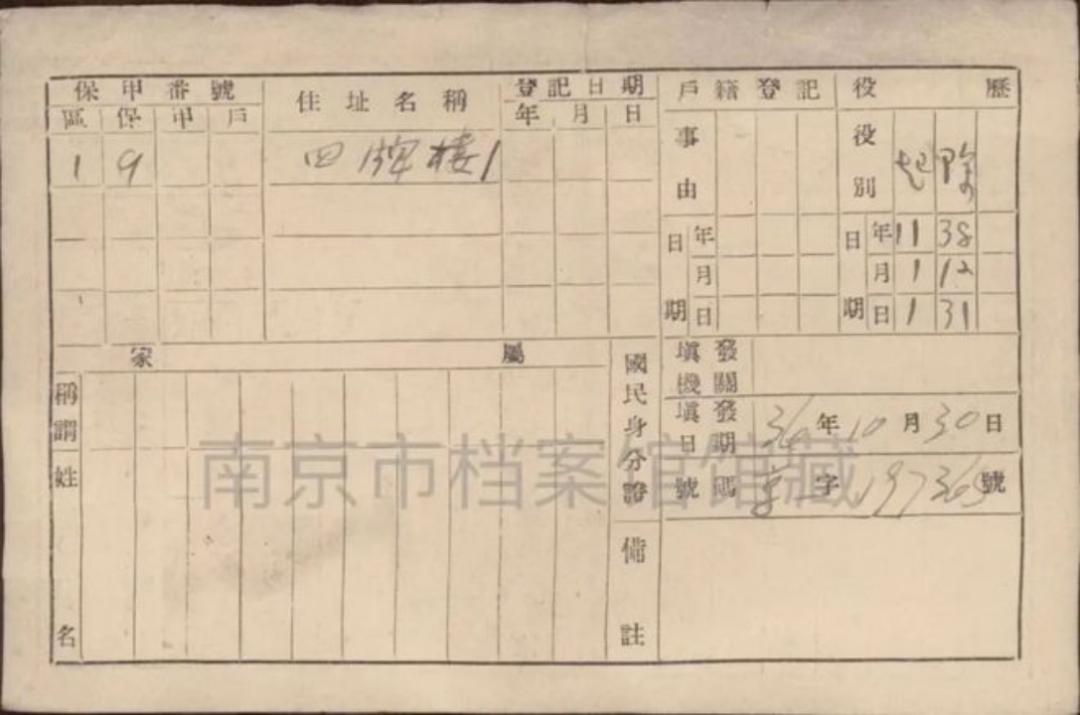 保甲番號 住址名稱 登記日期 戶籍登記 役歷
區 保 甲 戶 年 月 日 事由 役別 起 除
1 9 四牌樓1
日期 年 月 日 日期 年 11 38
月 1 12
日 1 31
家屬 國民身分證 填發機關
稱謂 填發日期 36年10月30日
姓名 號碼 字 197365 號
備註
南京市档案馆馆藏